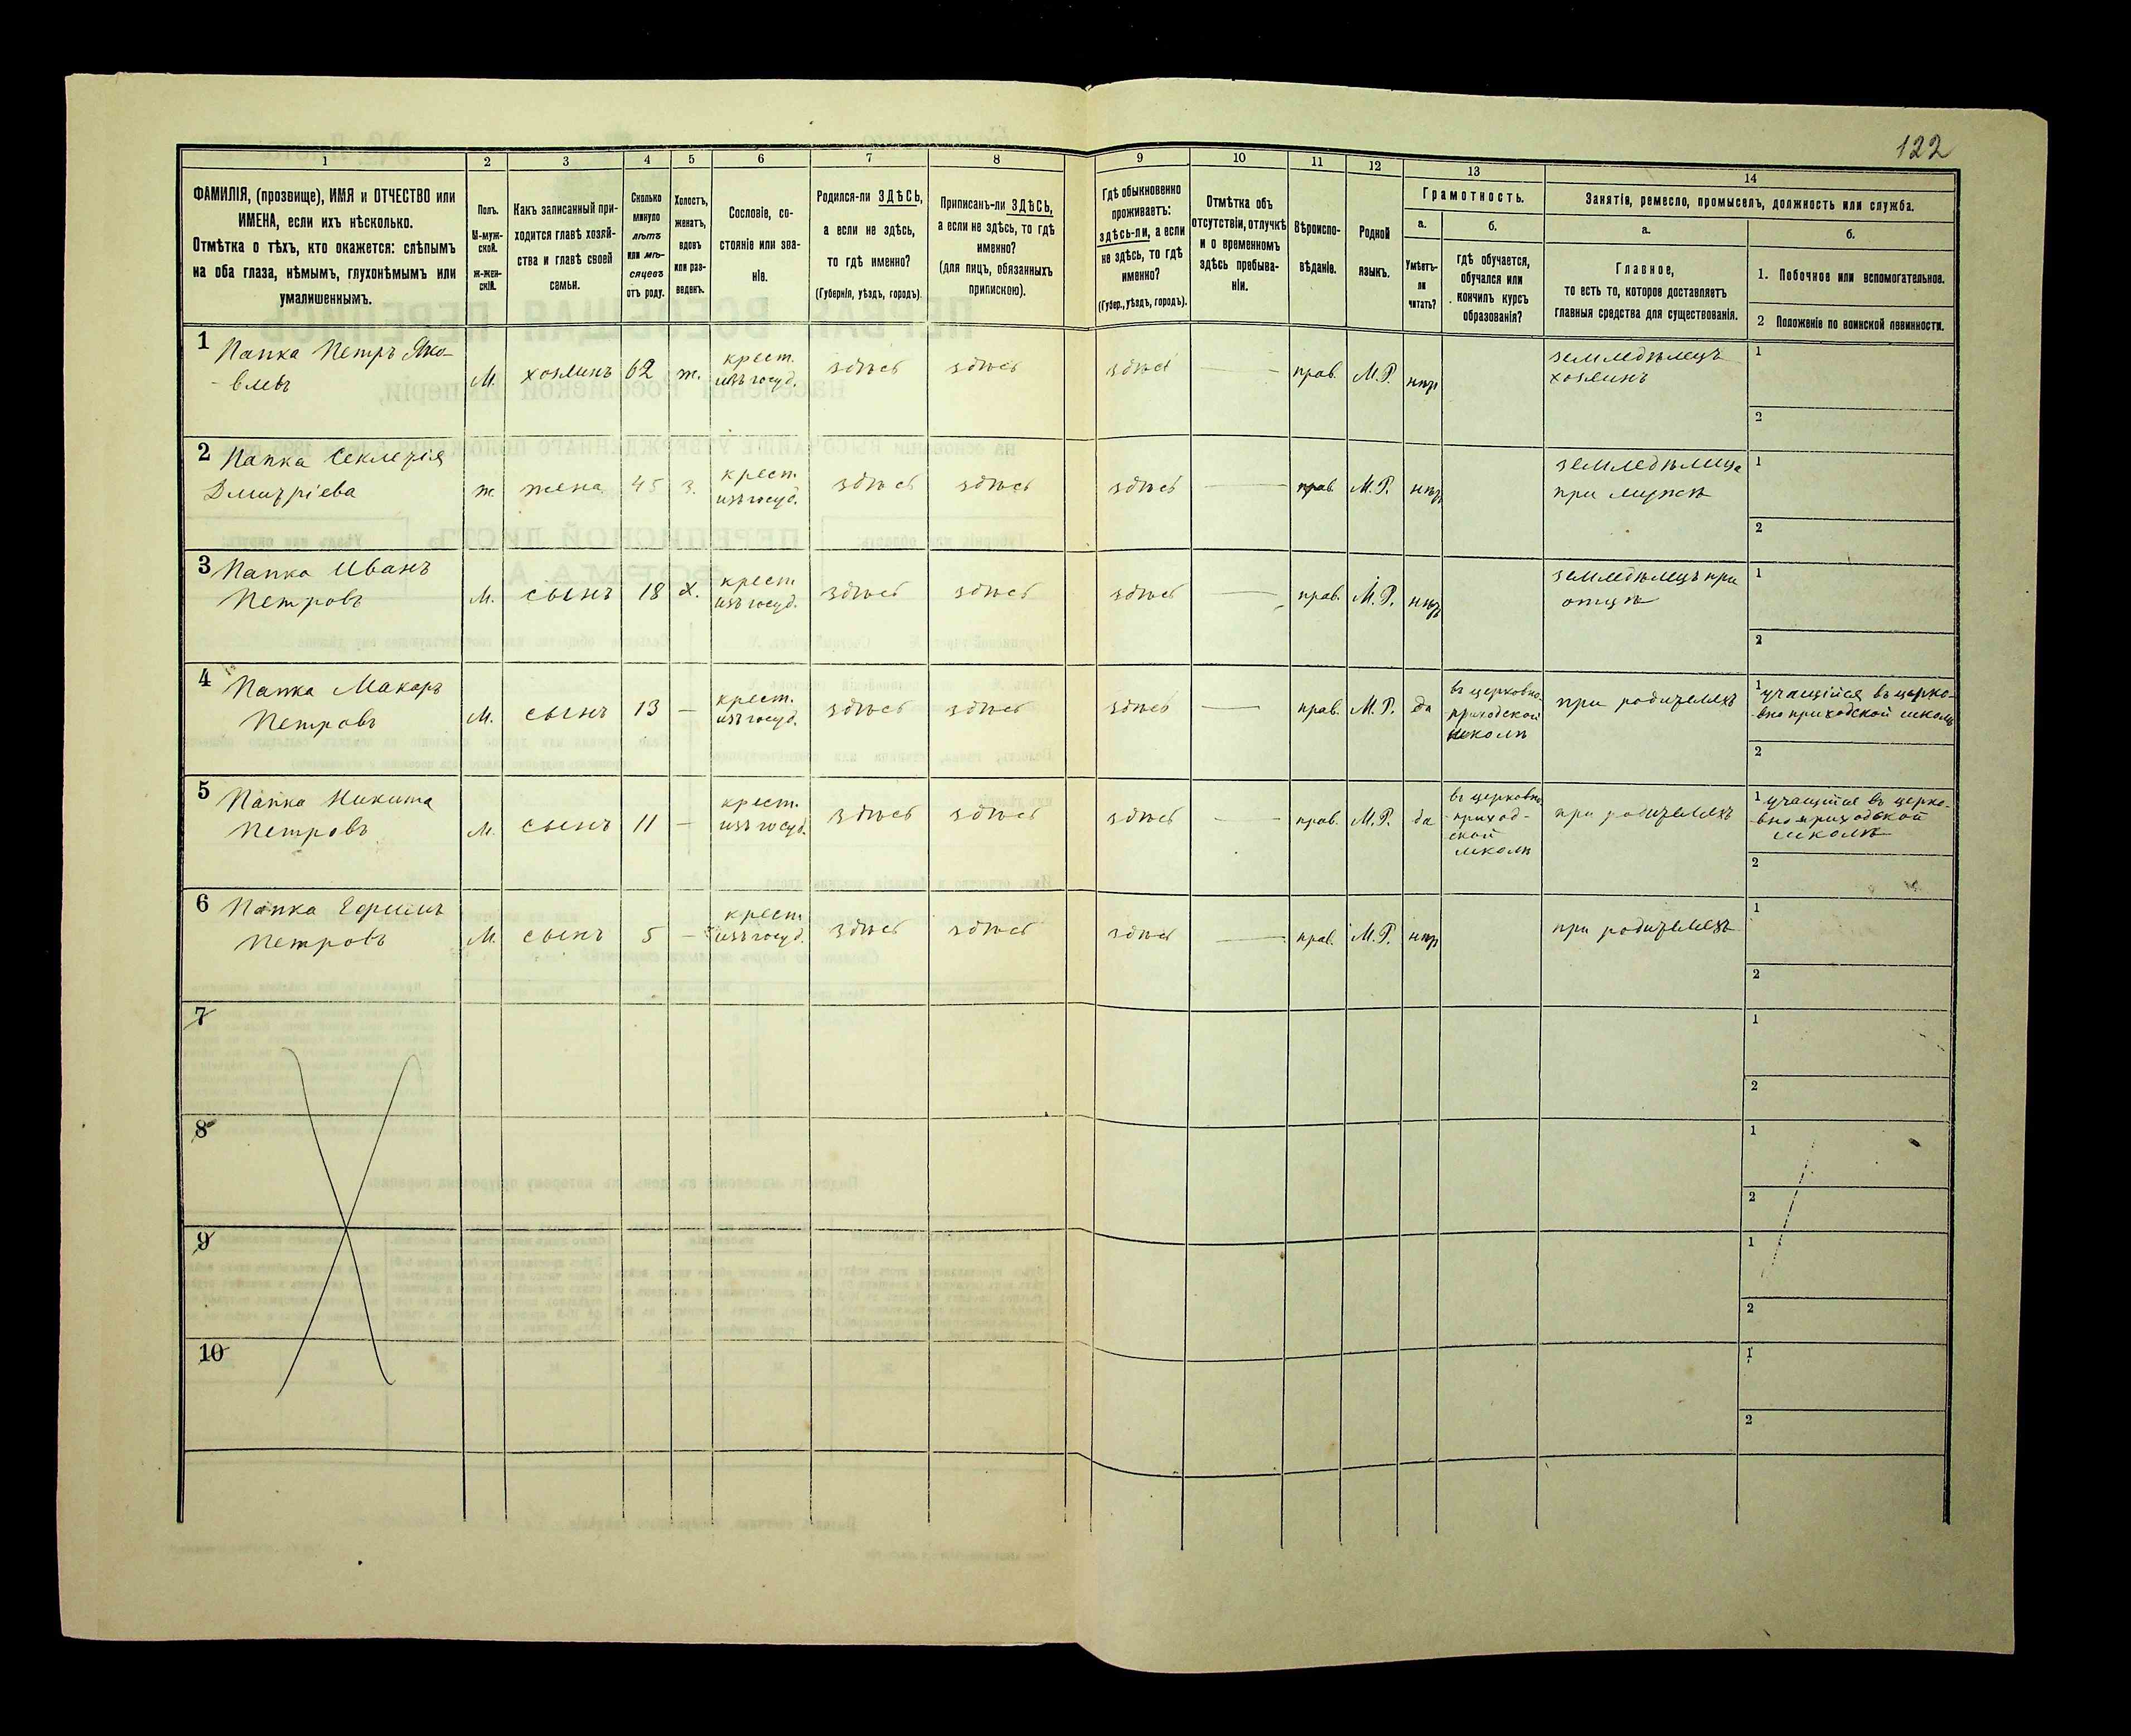 122
1 2 3 4 5 6 7 8 9 10 11 12 13 14
ФАМИЛІЯ, (прозвище), ИМЯ и ОТЧЕСТВО или
ИМЕНА, если ихъ нѣсколько.
Отмѣтка о тѣхъ, кто окажется: слѣпымъ
на оба глаза, нѣмымъ, глухонѣмымъ или
умалишеннымъ.
Полъ.
М-муж-
ской.
ж-жен-
скій.
Какъ записанный при-
ходится главѣ хозяй-
ства и главѣ своей
семьи.
Сколько
минуло
лѣтъ
или мѣ-
сяцевъ
отъ роду.
Холостъ,
женатъ,
вдовъ
или раз-
веденъ.
Сословіе, со-
стояніе или зва-
ніе.
Родился-ли ЗДѢСЬ,
а если не здѣсь,
то гдѣ именно?
(Губернія, уѣздъ, городъ).
Приписанъ-ли ЗДѢСЬ,
а если не здѣсь, то гдѣ
именно?
(для лицъ, обязанныхъ
припискою).
Гдѣ обыкновенно
проживаетъ:
здѣсь-ли, а если
не здѣсь, то гдѣ
именно?
(Губер., уѣздъ, городъ).
Отмѣтка объ
отсутствіи, отлучкѣ
и о временномъ
здѣсь пребыва-
ніи.
Вѣроиспо-
вѣданіе.
Родной
языкъ.
Грамотность.
а.
Умѣетъ-
ли
читать?
б.
гдѣ обучается,
обучался или
кончилъ курсъ
образованія?
Занятія, ремесло, промыселъ, должность или служба.
а.
Главное,
то есть то, которое доставляетъ
главныя средства для существованія.
б.
1. Побочное или вспомогательное.
2 Положеніе по воинской повинности.
1 Папка Петръ Яко-
-влевъ
М. хозяинъ 62 ж.
крест.
изъ госуд.
здѣсь здѣсь здѣсь прав. М.Р. нѣтъ
земледѣлецъ
хозяинъ
1
2
2 Папка Секлетія
Дмитріева
ж. жена 45 з.
крест.
изъ госуд.
здѣсь здѣсь здѣсь прав. М.Р. нѣтъ
земледѣлица
при мужѣ
1
2
3 Папка Иванъ
Петровъ
М. сынъ 18 х.
крест.
изъ госуд.
здѣсь здѣсь здѣсь прав. М.Р. нѣтъ
земледѣлецъ при
отцѣ
1
2
4 Папка Макаръ
Петровъ
М. сынъ 13 —
крест.
изъ госуд.
здѣсь здѣсь здѣсь прав. М.Р. да
въ церковно-
приходской
школѣ
при родителяхъ
1 учащійся въ церко-
вно приходской школѣ
2
5 Папка Никита
Петровъ
М. сынъ 11 —
крест.
изъ госуд.
здѣсь здѣсь здѣсь прав. М.Р. да
въ церковно
приход-
ской
школѣ
при родителяхъ
1 учащійся въ церко-
вно приходской
школѣ
2
6 Папка
Петровъ
М. сынъ 5 —
крест.
изъ госуд.
здѣсь здѣсь здѣсь прав. М.Р. нѣтъ
при родителяхъ
1
2
7
1
2
8
1
2
9
1
2
10
1
2